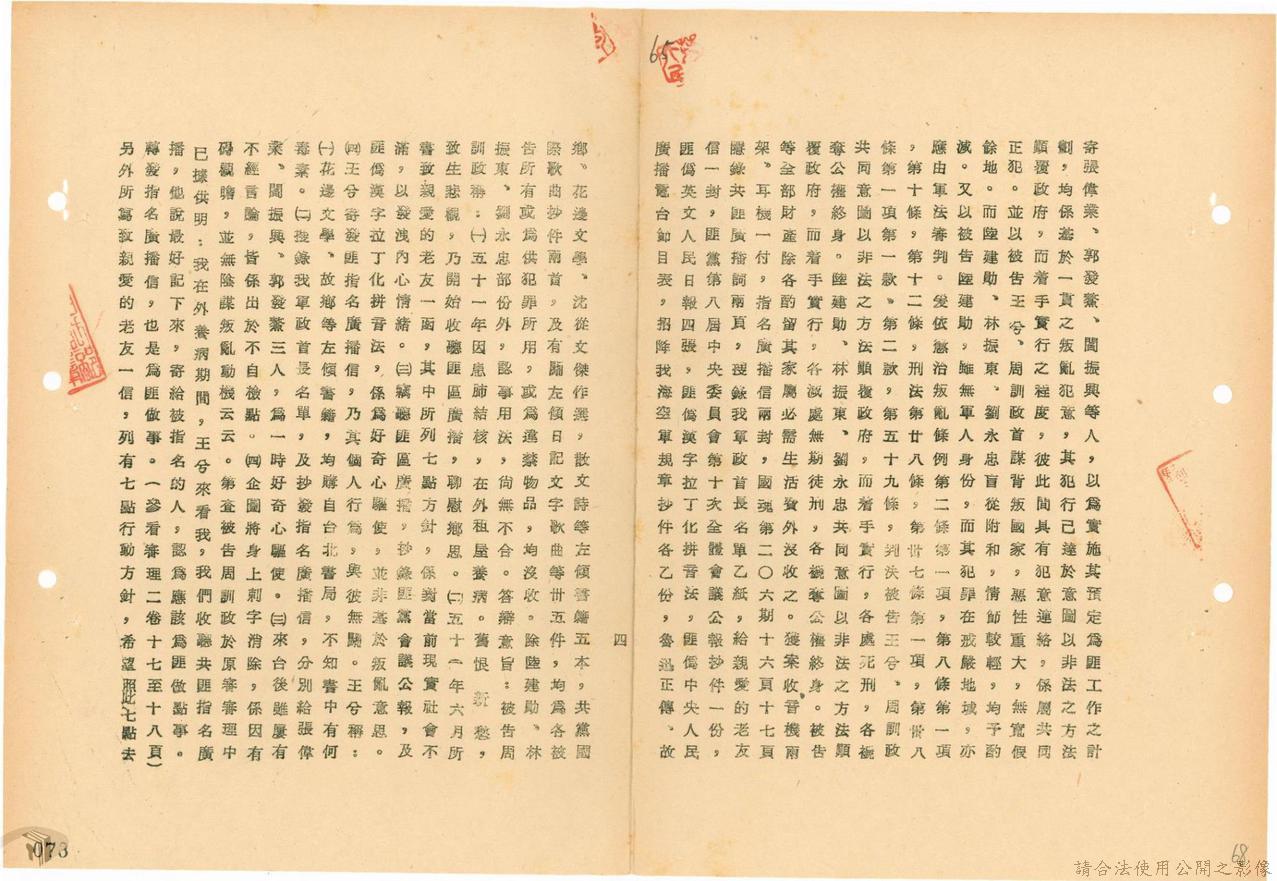 65
寄張偉業、郭發鰲、閻振興等人，以爲實施其預定爲匪工作之計
劃，均係基於一貫之叛亂犯意，其犯行已達於意圖以非法之方法
顚覆政府，而着手實行之程度，彼此間具有犯意連絡，係屬共同
正犯。並以被告王兮、周訓政首謀背叛國家，惡性重大，無寬假
餘地。而陸建勛、林振東、劉永忠盲從附和，情節較輕，均予酌
減。又以被告陸建勛，雖無軍人身份，而其犯罪在戒嚴地域，亦
應由軍法審判。爰依懲治叛亂條例第二條第一項，第八條第一項
，第十條，第十二條，刑法第廿八條，第卅七條第一項，第卅八
條第一項第一款，第二款，第五十九條，判決被告王兮、周訓政
共同意圖以非法之方法顚覆政府，而着手實行，各處死刑，各褫
奪公權終身。陸建勛、林振東、劉永忠共同意圖以非法之方法顚
覆政府，而着手實行，各減處無期徒刑，各褫奪公權終身。被告
等全部財產除各酌留其家屬必需生活費外沒收之。獲案收音機兩
架，耳機一付，指名廣播信兩封，國魂第二〇六期十六頁十七頁
謄錄共匪廣播詞兩頁，搜錄我軍政首長名單乙紙，給親愛的老友
信一封，匪黨第八屆中央委員會第十次全體會議公報抄件一份，
匪僞英文人民日報四張，匪僞漢字拉丁化拼音法，匪僞中央人民
廣播電台節目表，招降我海空軍規章抄件各乙份，魯迅正傳、故
四
鄉、花邊文學、沈從文傑作選，散文詩等左傾書籍五本，共黨國
際歌曲抄件兩首，及有關左傾日記文字歌曲等卅五件，均爲各被
告所有或爲供犯罪所用，或爲違禁物品，均沒收。除陸建勛、林
振東、劉永忠部份外，認事用法，尙無不合。答辯意旨：被告周
訓政稱：㈠五十一年因患肺結核，在外租屋養病。舊恨新愁，
致生悲觀，乃開始收聽匪區廣播，聊慰鄉思。㈡五十一年六月所
書致親愛的老友一函，其中所列七點方針，係對當前現實社會不
滿，以發洩內心情緖。㈢竊聽匪區廣播，抄錄匪黨會議公報，及
匪僞漢字拉丁化拼音法，係爲好奇心驅使，並非基於叛亂意思。
㈣王兮寄發匪指名廣播信，乃其個人行爲，與彼無關。王兮稱：
㈠花邊文學、故鄉等左傾書籍，均購自台北書局，不知書中有何
毒素。㈡搜錄我軍政首長名單，及抄發指名廣播信，分別給張偉
業、閻振興、郭發鰲三人，爲一時好奇心驅使。㈢來台後雖屢有
不經言論，皆係出於不自檢點。㈣企圖將身上刺字消除，係因有
碍觀瞻，並無陰謀叛亂動機云云。第查被告周訓政於原審審理中
已據供明：我在外養病期間，王兮來看我，我們收聽共匪指名廣
播，他說最好記下來，寄給被指名的人，認爲應該爲匪做點事。
轉發指名廣播信，也是爲匪做事。（參看審理二卷十七至十八頁）
另外所寫致親愛的老友一信，列有七點行動方針，希望照此七點去
073
68
請合法使用公開之影像